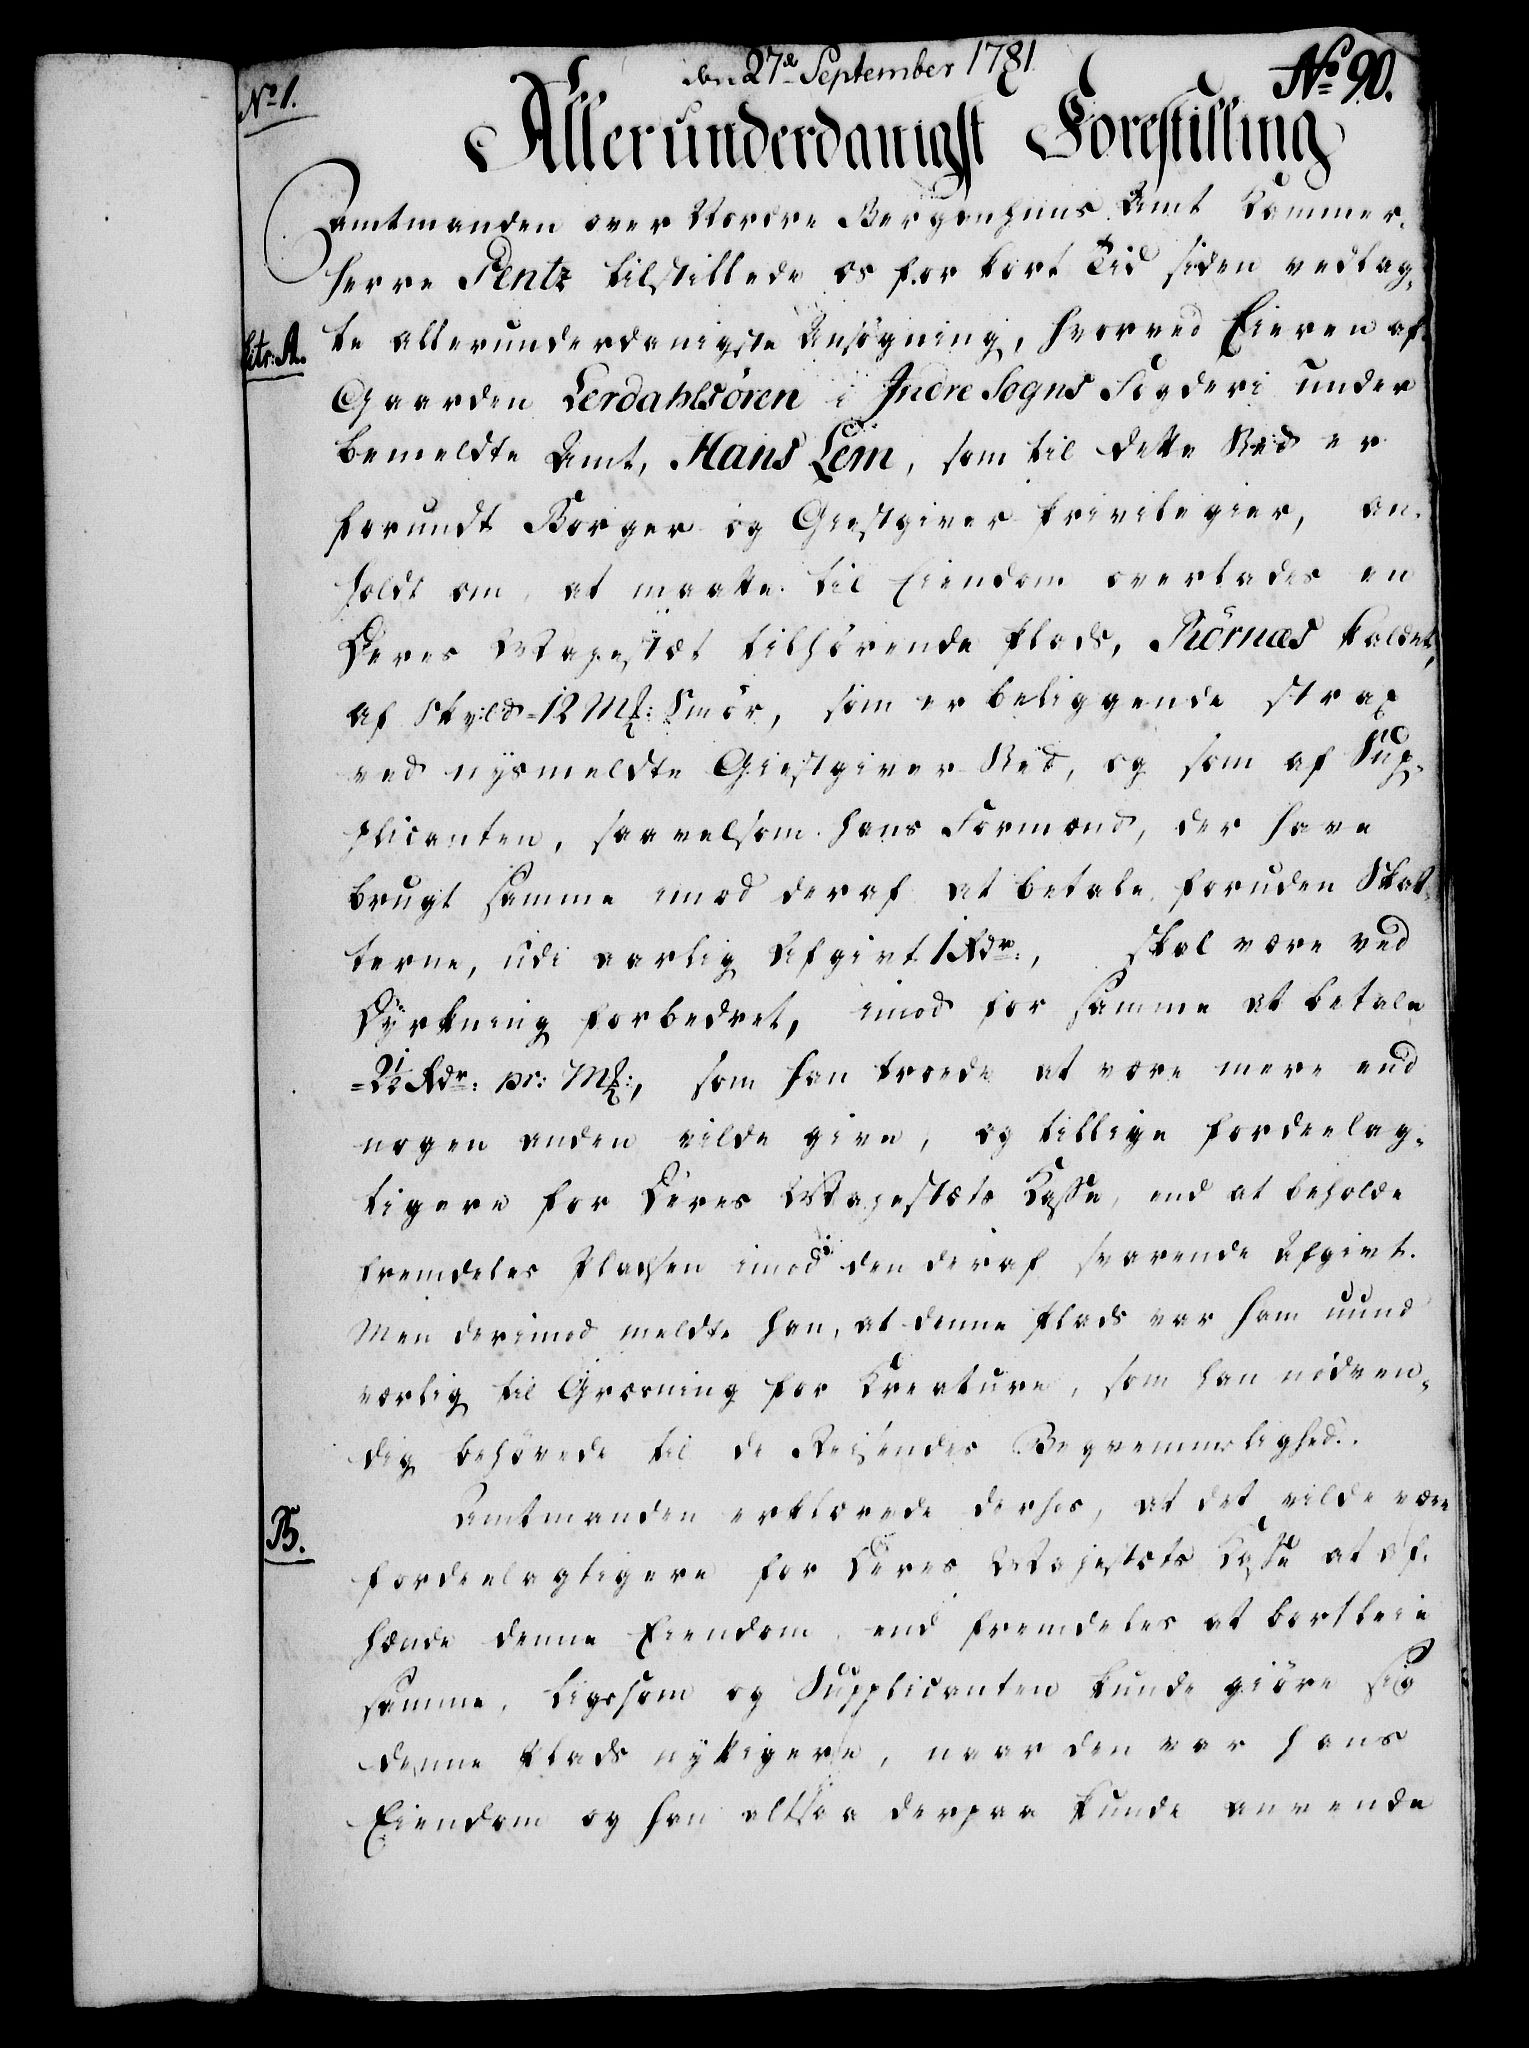 den 27de September 1781.
No 90.
No 1.
Allerunderdanigst Forestilling
Amtmanden over Nordre Bergenhuus Amt Kammer-
herre Pentz tilstillede os for kort Tid siden vedlag-
Litr: A.
te allerunderdanigste Ansøgning, hvorved Eieren af
Gaarden Lerdahlsören i Indre Sogns Fogderi under
bemeldte Amt, Hans Lem, som til dette Sted er
forundt Borger og Giestgiver Privilegier, an-
holdt om, at maatte til Eiendom overlades en
Deres Majestæt tilhörende Plads, Rörnæs kaldet,
af Skyld =12 Mk: Smör, som er beliggende strax
ved nysmeldte Giestgiver Sted, og som af Sup-
plicanten, saavelsom hans Formænd, der have
brugt samme imod deraf at betale, foruden Skat-
terne, udi aarlig Afgivt 1 Rdr:, skal være ved
Dyrkning forbedret, imod for samme at betale
=2½ Rdr: pr: Mk:, som han troede at være mere end
nogen anden vilde give, og tillige fordeelag-
tigere for Deres Majestæts Kasse, end at beholde
fremdeles Pladsen imod den deraf svarende Afgivt.
Men derimod meldte han, at denne Plads var ham uund
værlig til Græsning for Kreature, som han nödven-
dig behövede til de Reisendes Beqvemmelighed.
Amtmanden erklærede derhos, at det vilde være
B.
fordeelagtigere for Deres Majestæts Kasse at af-
hænde denne Eiendom, end fremdeles at bortleie
samme, ligesom og Supplicanten kunde giöre sig
denne Plads nyttigere, naar den var hans
Eiendom og han altsaa derpaa kunde anvende